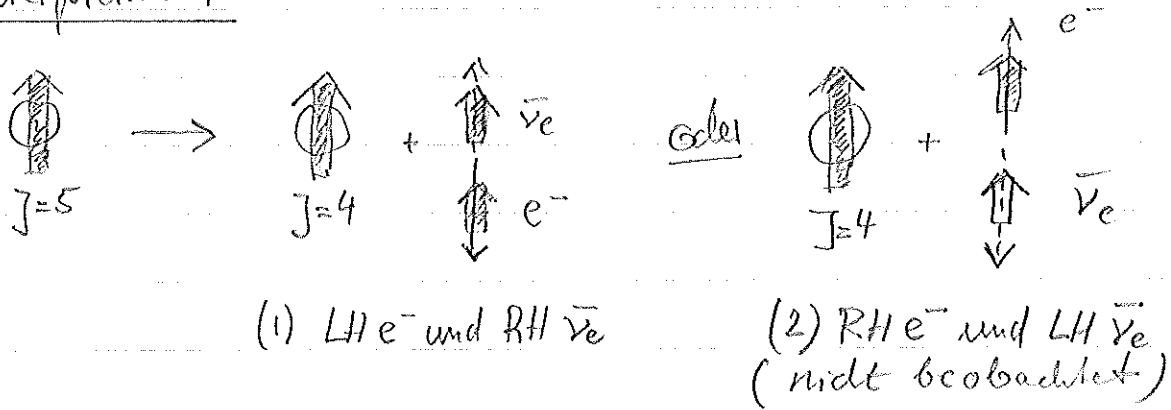 e⁻
→ + ν̄e oder + 
J=5 J=4 e⁻ J=4 ν̄e
(1) LH e⁻ und RH ν̄e (2) RH e⁻ und LH ν̄e
(nicht beobachtet)